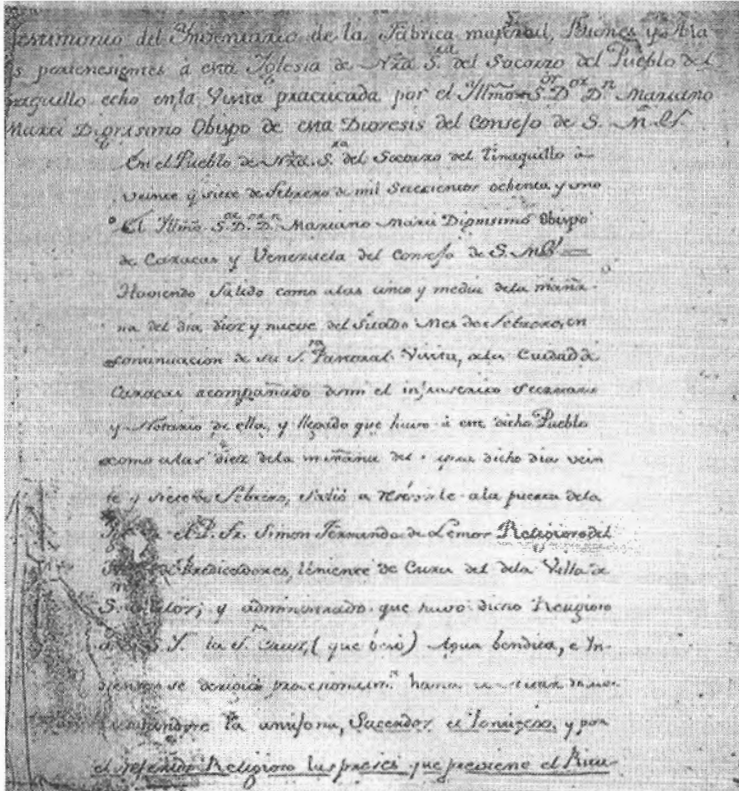 Testimonio del Inventario de la Fabrica material, Bienes y Ala
s pertenesientes à esta Iglesia de Nra Sra del Socorro del Pueblo del
naquillo echo en la Visita practicada por el Illmo Sor Dor Dn Mariano
Marti Dignisimo Obispo de esta Diocesis del Consejo de S. M. &
En el Pueblo de Nra. Sra del Socorro del Tinaquillo à
veinte y siete de febrero de mil Setecientos ochenta y uno
El Illmo Sor Dor Dn Mariano Marti Dignisimo Obispo
de Caracas y Venezuela del Consejo de S. M. &
Haviendo Salido como alas cinco y media dela maña-
na del dia diez y nueve del Sitado Mes de Febrero, en
continuacion de su Sta Pastoral Visita, ala Ciudad de
Caracas acompañado de mi el infrascrito Secretario
y Notario de ella, y llegado que huvo à este dicho Pueblo
como alas diez dela mañana del dicho dia vein
te y siete de Febrero, salió a ala puerta dela
el P. Fr. Simon Fernando de Lemos Religioso del
de Predicadores, teniente de Cura del dela Villa de
S. Carlos; y administrado que huvo dicho Religioso
S. Y. la Sta Cruz, (que besó) Agua bendita, e In-
sienso se processionalmte hasta
la antifona, Sacerdos et Pontifeso, y por
el referido Religioso las preses que previene el Ritu-